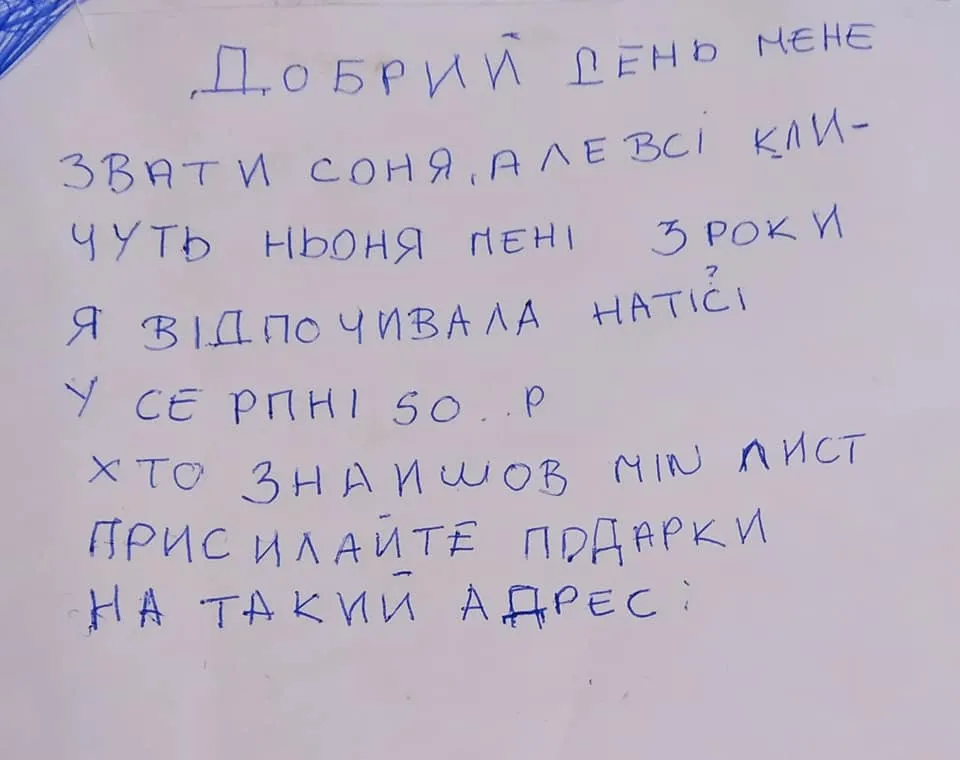 ДОБРИЙ ДЕНЬ МЕНЕ
ЗВАТИ СОНЯ, АЛЕ ВСІ КЛИ-
ЧУТЬ НЬОНЯ МЕНІ 3 РОКИ
Я ВІДПОЧИВАЛА НА ТІСІ
?
У СЕРПНІ 50...Р
ХТО ЗНАИШОВ МІN ЛИСТ
ПРИСИЛАЙТЕ ПОДАРКИ
НА ТАКИЙ АДРЕС: